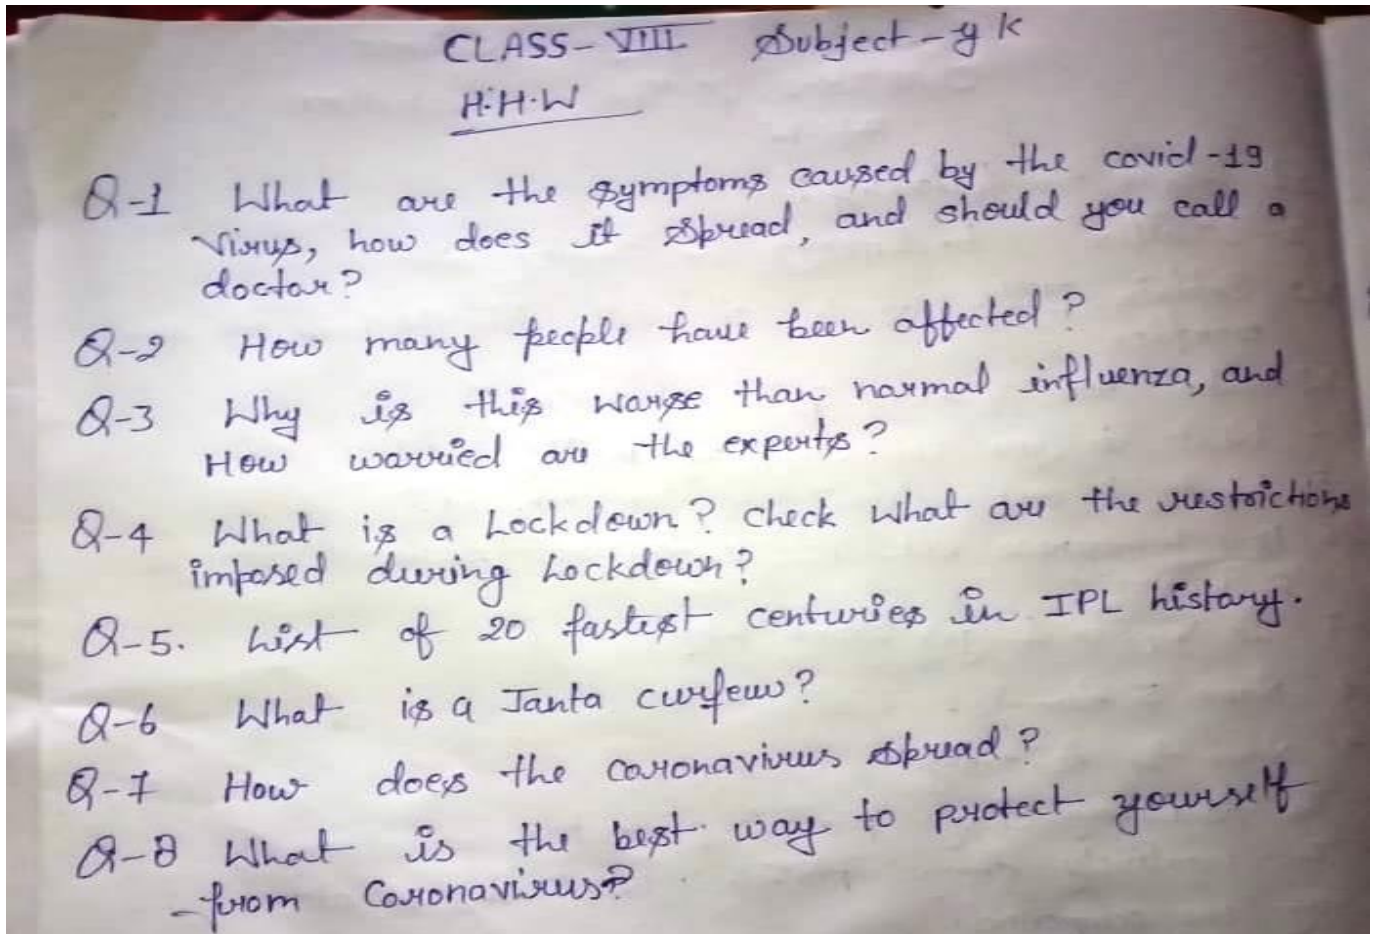 CLASS-VIII Subject-gk
H.H.W
Q-1 What are the symptoms caused by the covid-19
virus, how does it spread, and should you call a
doctor?
Q-2 How many people have been affected?
Q-3 Why is this worse than normal influenza, and
How worried are the experts?
Q-4 What is a Lockdown? check what are the restrictions
imposed during Lockdown?
Q-5. List of 20 fastest centuries in IPL history.
Q-6 What is a Janta curfew?
Q-7 How does the coronavirus spread?
Q-8 What is the best way to protect yourself
from Coronavirus?